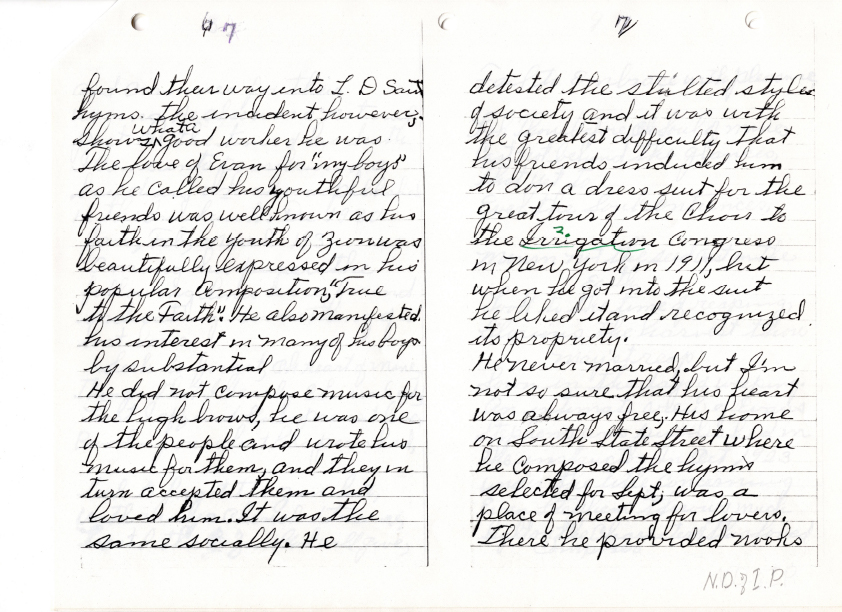 6 7
found their way into L. D Saint
hyms. the incident however,
shows what a good worker he was.
The love of Evan for "my boys"
as he called his youthful
friends was well known as his
faith in the youth of Zion was
beautifully expressed in his
popular composition, "True
to the Faith". He also manifested
his interest in many of his boys
by substantial
He did not compose music for
the high brows, he was one
of the people and wrote his
music for them, and they in
turn accepted them and
loved him. It was the
same socially. He
7
detested the stilted styles
of society and it was with
the greatest difficulty that
his friends induced him
to don a dress suit for the
great tour of the Choir to
the Irrigation Congress
?
in New York in 1911, but
when he got into the suit
he liked it and recognized
its propriety.
He never married, but I'm
not so sure that his heart
was always free. His home
on South State Street where
he composed the hymns
selected for Sept, was a
place of meeting for lovers.
There he provided nooks
N.D. of I.P.